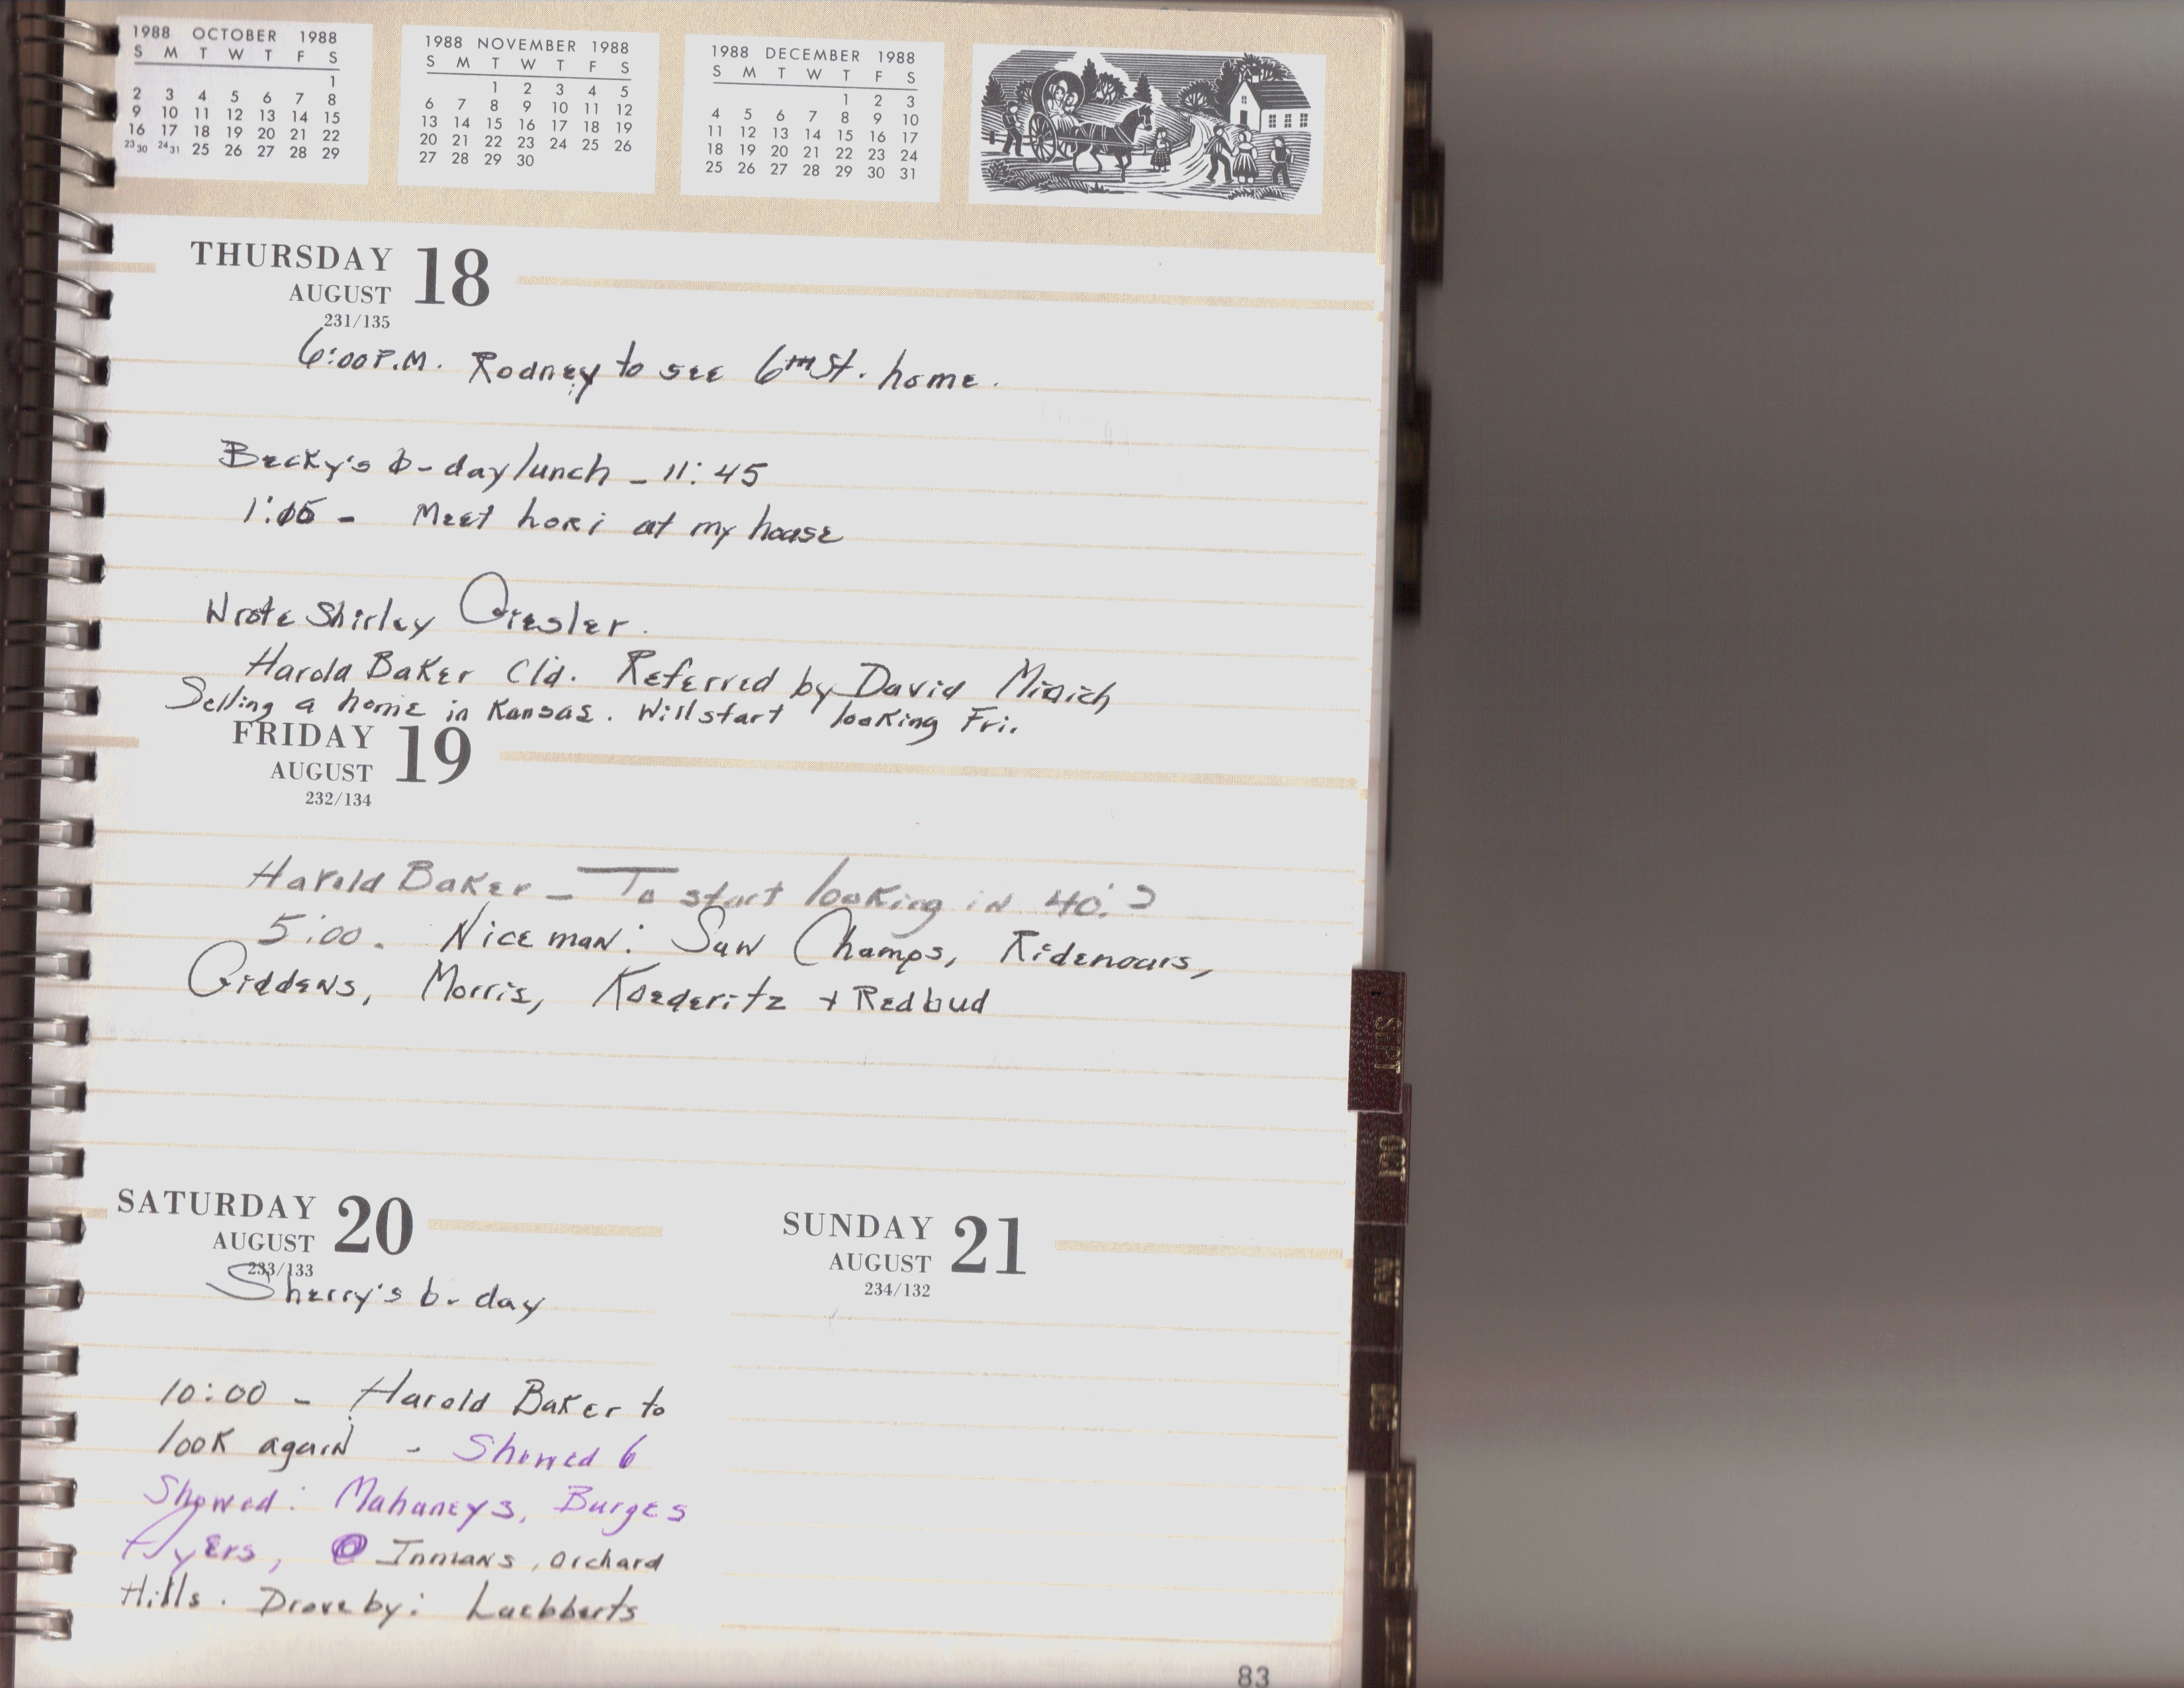 1988 OCTOBER 1988
S M T W T F S
1
2 3 4 5 6 7 8
9 10 11 12 13 14 15
16 17 18 19 20 21 22
23 30 24 31 25 26 27 28 29
1988 NOVEMBER 1988
S M T W T F S
1 2 3 4 5
6 7 8 9 10 11 12
13 14 15 16 17 18 19
20 21 22 23 24 25 26
27 28 29 30
1988 DECEMBER 1988
S M T W T F S
1 2 3
4 5 6 7 8 9 10
11 12 13 14 15 16 17
18 19 20 21 22 23 24
25 26 27 28 29 30 31
THURSDAY 18
AUGUST
231/135
6:00 P.M. Rodney to see 6th St. home.
Becky's b-day lunch - 11:45
- Meet Lori at my house
Wrote Shirley Giesler.
Harold Baker Cld. Referred by David Minich
Selling a home in Kansas. Will start looking Fri.
FRIDAY 19
AUGUST
232/134
Harold Baker - To start looking in 40's
5:00. Nice man: Saw Champs, Ridenours,
Giddens, Morris, Koederitz + Redbud
SATURDAY 20
AUGUST
233/133
Sherry's b-day
10:00 - Harold Baker to
look again - Showed 6
Showed: Mahaneys, Burges
Flyers, Inmans, Orchard
Hills. Drove by: Luebberts
SUNDAY 21
AUGUST
234/132
SEPT
OCT
NOV
DEC
83